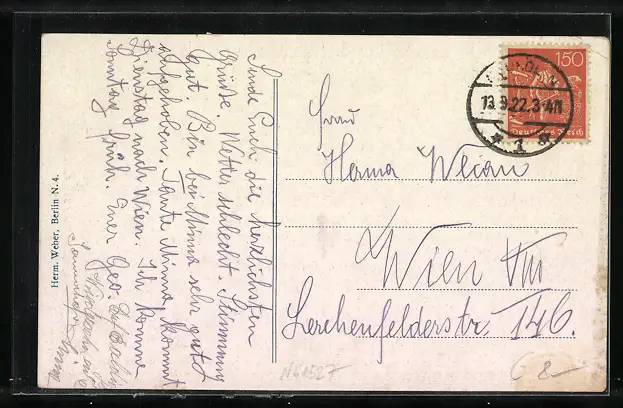 Sende Euch die herzlichsten
Grüsse. Wetter schlecht. Stimmung
gut. Bin bei Minna sehr gut
aufgehoben. Tante Minna kommt
Dienstag nach Wien. Ich komme
Sonntag früh. Euer Geo.
Herm. Weber, Berlin N. 4.
150
Deutsches Reich
13.9.22.3-4N
* 1 *
Frau
Herma
Wien VIII
Lerchenfelderstr. 146.
N61527
8-